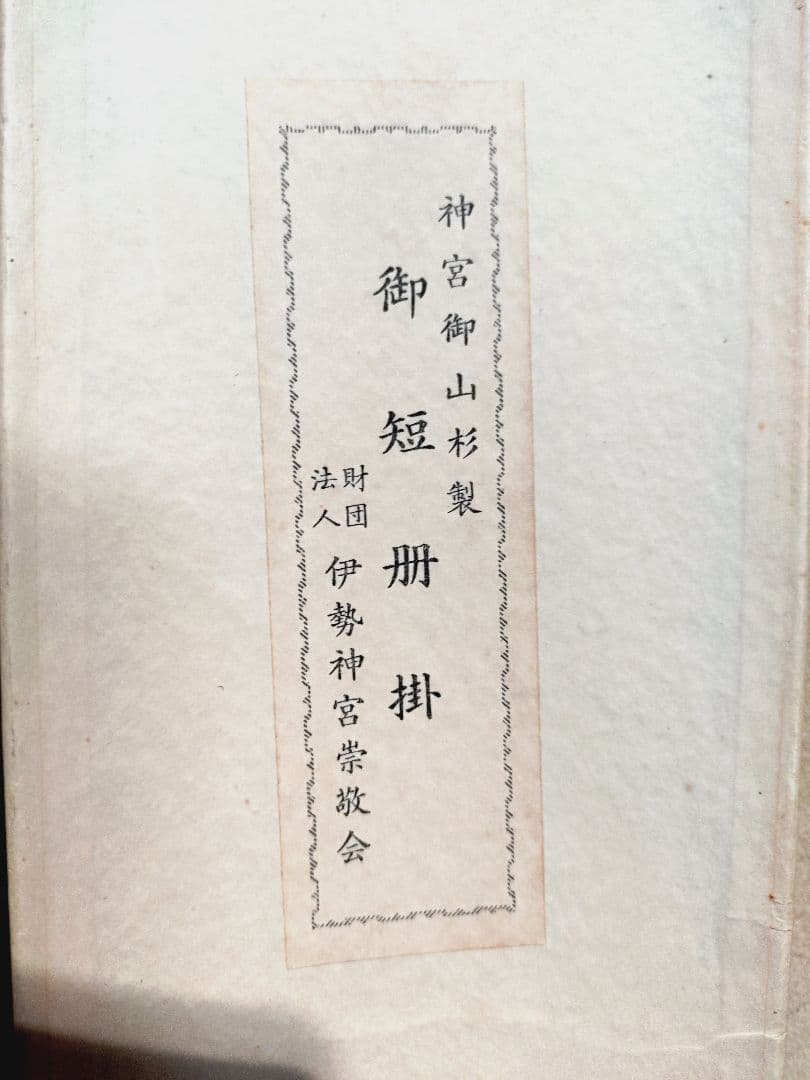 神宮御山杉製
御短册掛
財団法人 伊勢神宮崇敬会